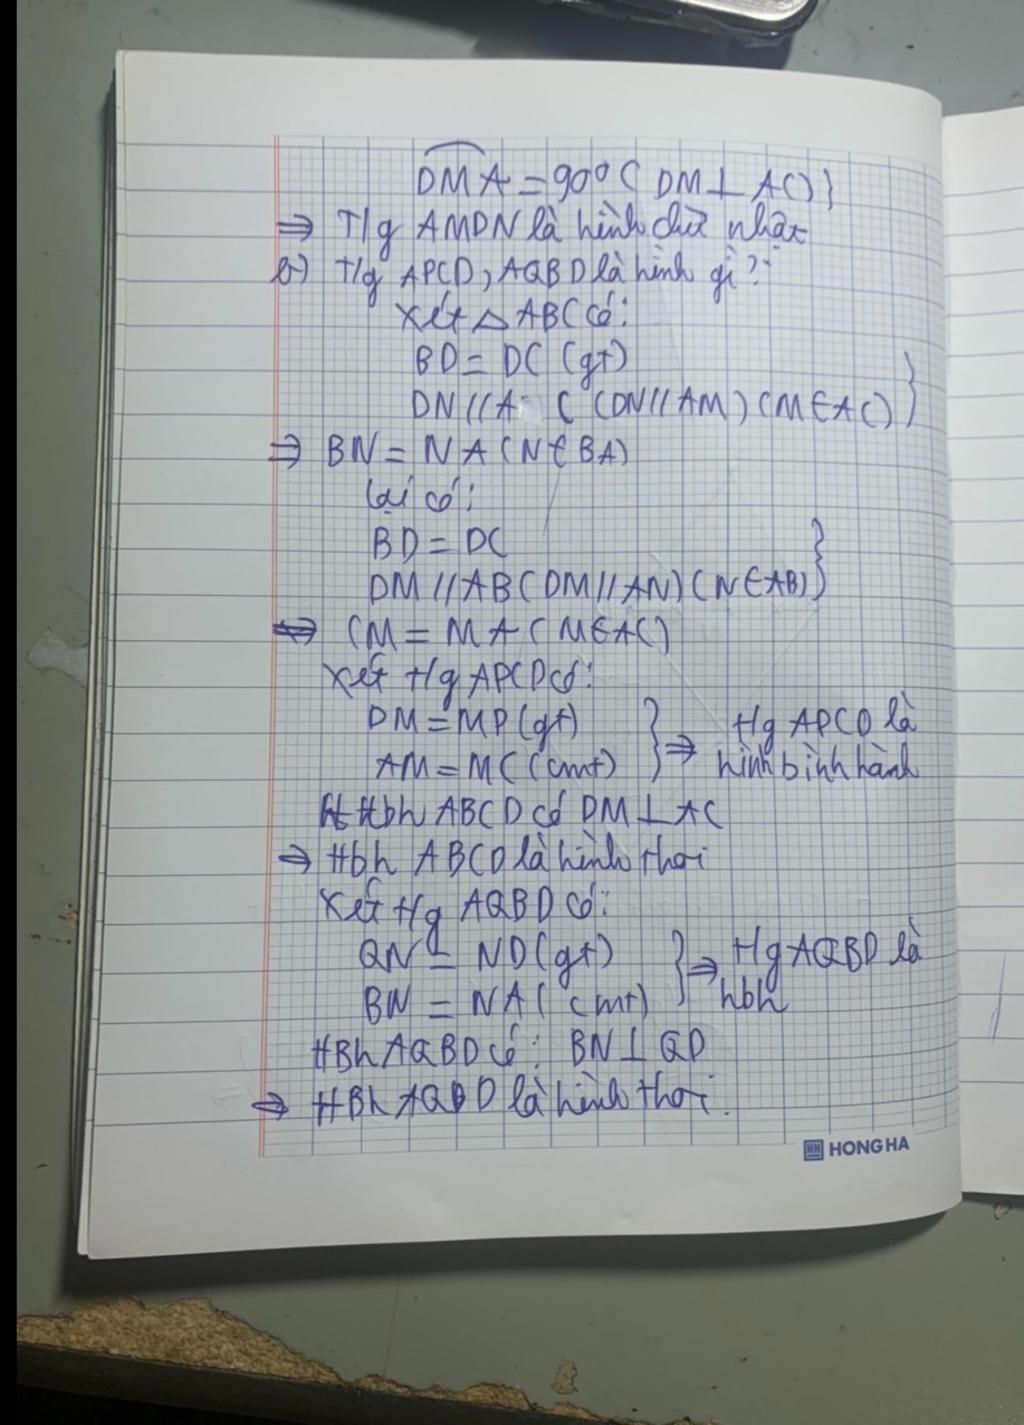 DMA = 90° ( DM ⊥ AC) }
⇒ T/g AMDN là hình chữ nhật
b) T/g APCD, AQBD là hình gì?
Xét △ ABC có:
BD = DC (gt)
DN // A C (DN // AM) (M ∈ AC) }
⇒ BN = NA (N ∈ BA)
Lại có:
BD = DC
DM // AB (DM // AN) (N ∈ AB) }
⇒ CM = MA (M ∈ AC)
Xét t/g APCD có:
DM = MP (gt) } ⇒ t/g APCD là
AM = MC (cmt) hình bình hành
Hbh ABCD có DM ⊥ AC
⇒ Hbh ABCD là hình thoi
Xét t/g AQBD có:
QN = ND (gt) } ⇒ t/g AQBD là
BN = NA ( cmt) hbh
HBh AQBD có: BN ⊥ QD
⇒ HBh AQBD là hình thoi.
HH HONG HA